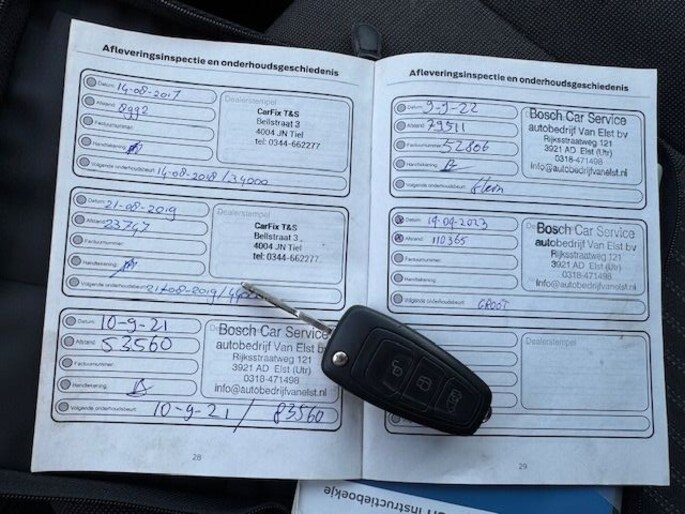 Afleveringsinspectie en onderhoudsgeschiedenis
Datum: 14-08-2017
Afstand: 8992
Factuurnummer:
Handtekening:
Volgende onderhoudsbeurt: 14-08-2018 / 34000
Dealerstempel
CarFix T&S
Bellstraat 3
4004 JN Tiel
tel: 0344-662277
Datum: 21-08-2019
Afstand: 23747
Factuurnummer:
Handtekening:
Volgende onderhoudsbeurt: 21-08-2019 /
Dealerstempel
CarFix T&S
Bellstraat 3
4004 JN Tiel
tel: 0344-662277
Datum: 10-9-21
Afstand: 53560
Factuurnummer:
Handtekening:
Volgende onderhoudsbeurt: 10-9-21 / 83560
Bosch Car Service
autobedrijf Van Elst b
Rijksstraatweg 121
3921 AD Elst (Utr)
0318-471498
info@autobedrijfvanelst.nl
28
Afleveringsinspectie en onderhoudsgeschiedenis
Datum: 9-9-22
Afstand: 79511
Factuurnummer: 52806
Handtekening:
Volgende onderhoudsbeurt: Klein
Bosch Car Service
autobedrijf van Elst bv
Rijksstraatweg 121
3921 AD Elst (Utr)
0318-471498
info@autobedrijfvanelst.nl
Datum: 19-09-2023
Afstand: 110365
Factuurnummer:
Handtekening:
Volgende onderhoudsbeurt: GROOT
Bosch Car Service
autobedrijf Van Elst bv
Rijksstraatweg 121
3921 AD Elst (Utr)
0318-471498
info@autobedrijfvanelst.nl
Dealerstempel
29
Instructieboekje